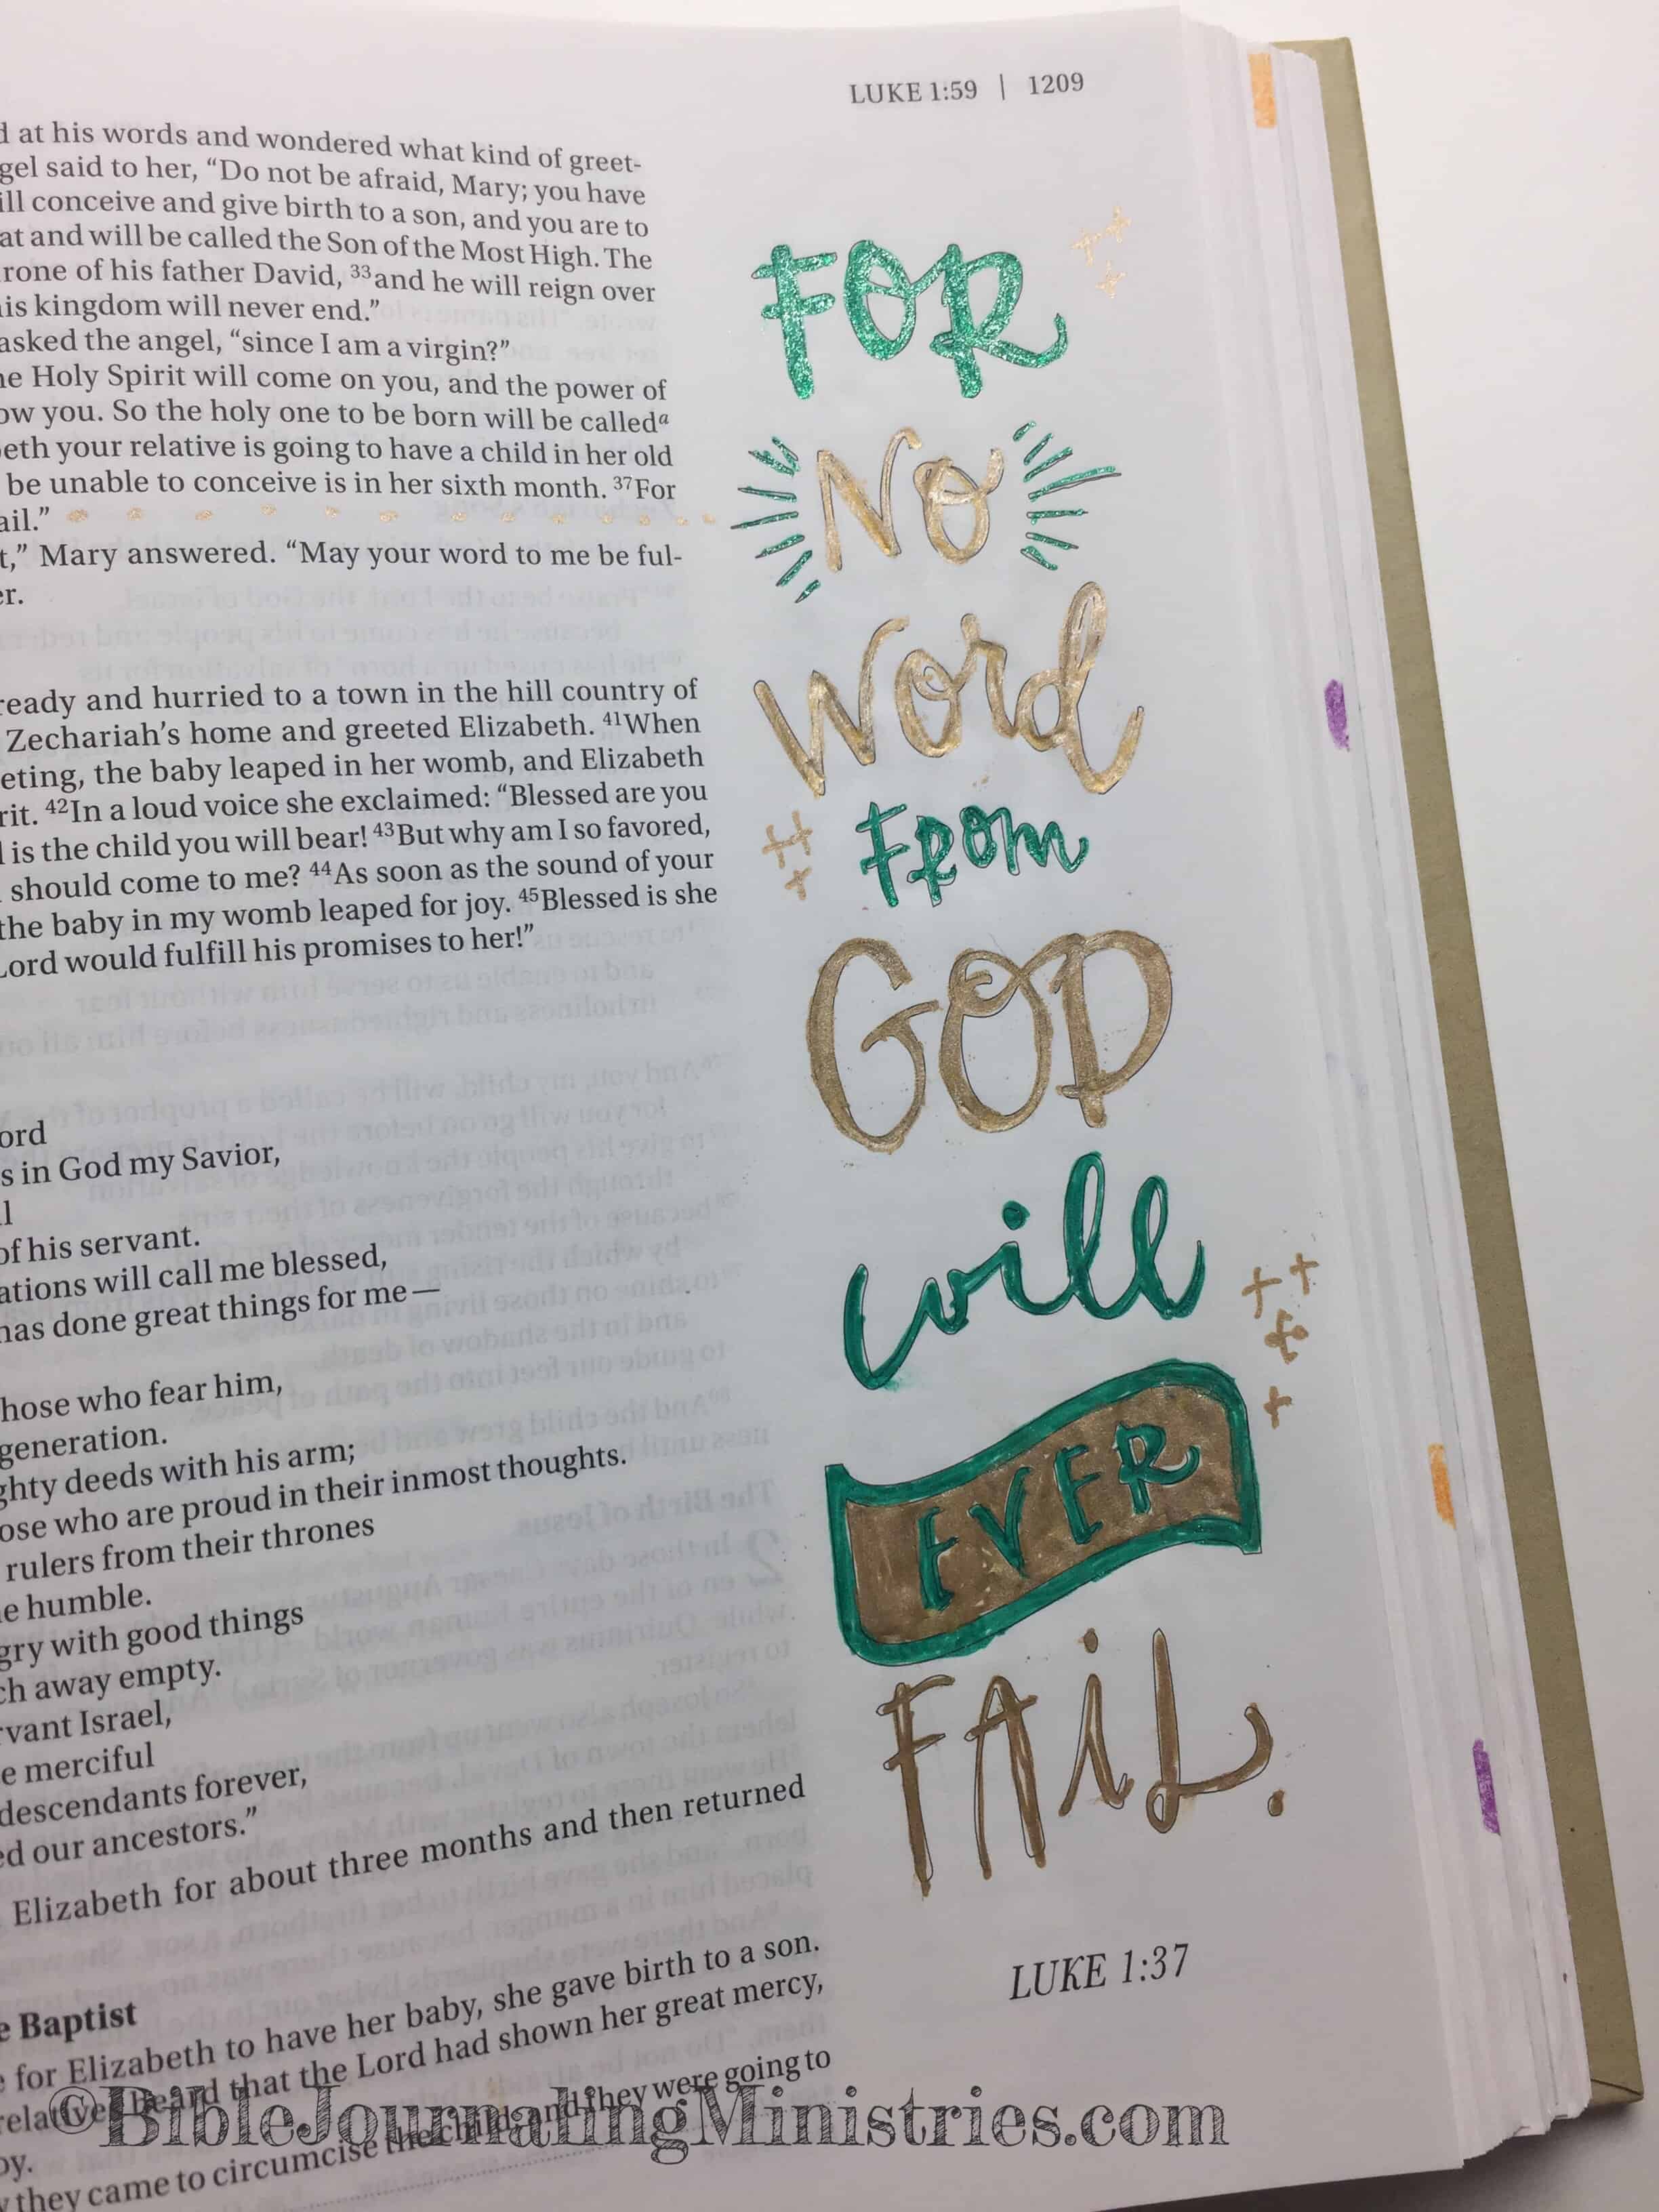 LUKE 1:59 | 1209
at his words and wondered what kind of greet-
said to her, “Do not be afraid, Mary; you have
conceive and give birth to a son, and you are to
and will be called the Son of the Most High. The
of his father David, ³³and he will reign over
kingdom will never end.”
asked the angel, “since I am a virgin?”
Holy Spirit will come on you, and the power of
you. So the holy one to be born will be calledᵃ
your relative is going to have a child in her old
be unable to conceive is in her sixth month. ³⁷For
Mary answered. “May your word to me be ful-
ready and hurried to a town in the hill country of
Zechariah’s home and greeted Elizabeth. ⁴¹When
the baby leaped in her womb, and Elizabeth
⁴²In a loud voice she exclaimed: “Blessed are you
is the child you will bear! ⁴³But why am I so favored,
should come to me? ⁴⁴As soon as the sound of your
the baby in my womb leaped for joy. ⁴⁵Blessed is she
Lord would fulfill his promises to her!”
in God my Savior,
of his servant.
will call me blessed,
has done great things for me—
those who fear him,
generation.
deeds with his arm;
those who are proud in their inmost thoughts.
rulers from their thrones
humble.
with good things
away empty.
Israel,
merciful
descendants forever,
our ancestors.”
Elizabeth for about three months and then returned
Baptist
for Elizabeth to have her baby, she gave birth to a son.
heard that the Lord had shown her great mercy,
and they were going to
they came to circumcise the child,
FOR
No
Word
From
GOD
will
EVER
FAiL.
LUKE 1:37
©BibleJournalingMinistries.com